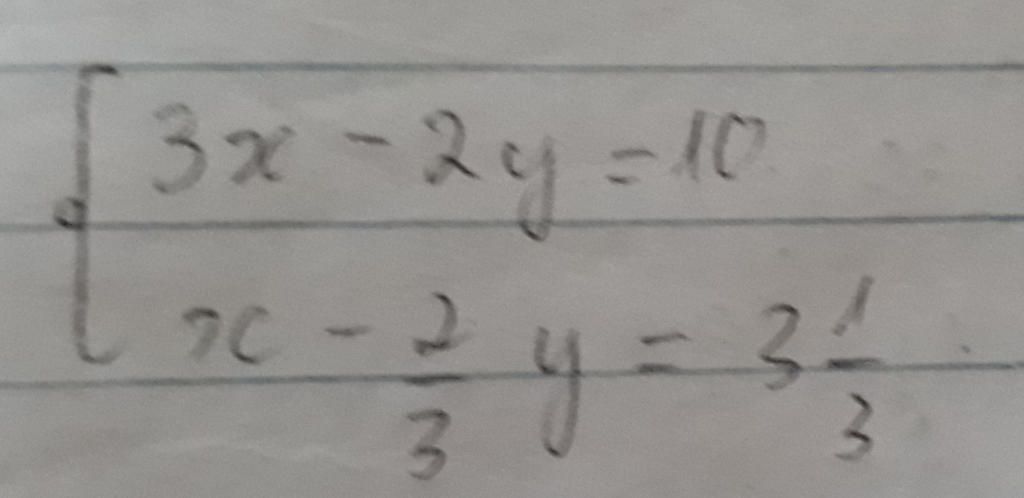 3x - 2y = 10
x - 2/3 y = 3 1/3